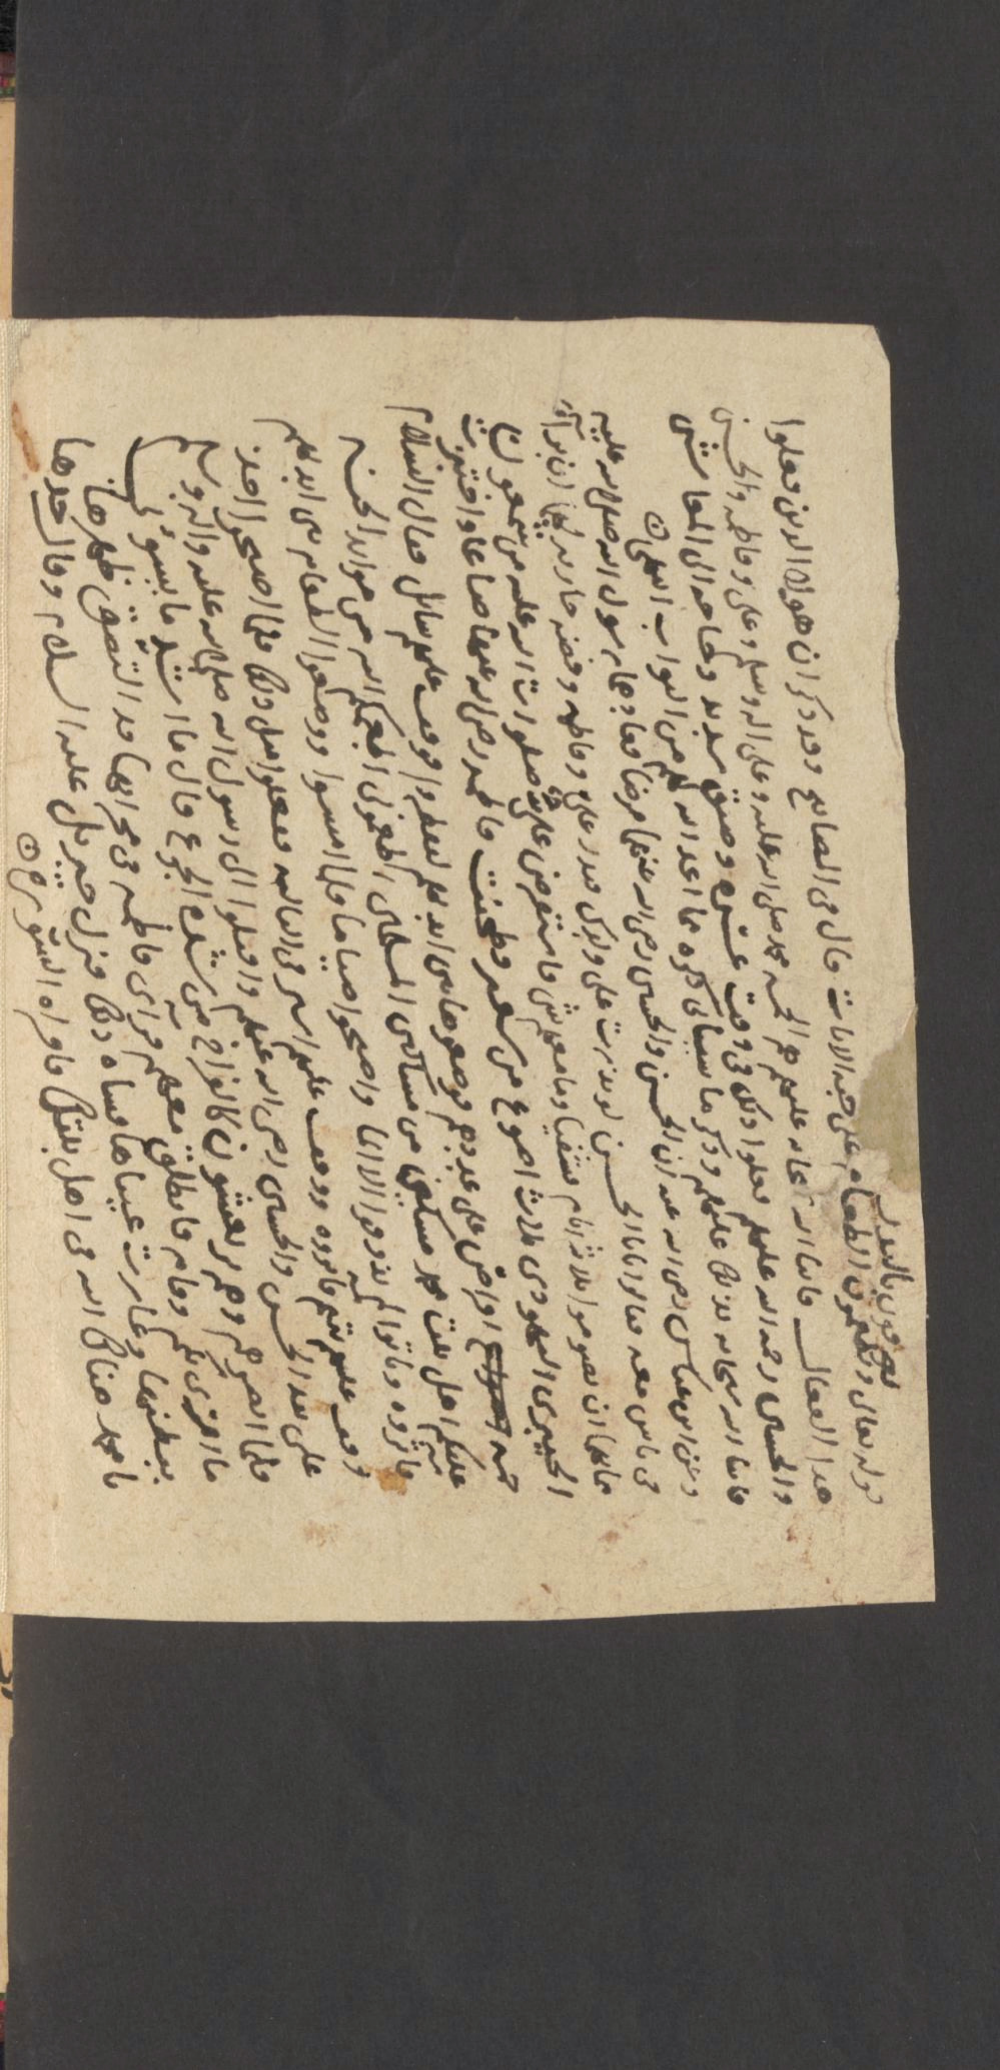 قوله تعالى ويطعمون الطعام على حبه الايات قال في المصابيح وقد ذكر ان هولاء الذين فعلوا
يوفون بالنذر
هذا الفعال فاثنا الله سبحانه عليهم هم الخمسة محمد صلى الله عليه وعلى اله وسلم وعلي وفاطمة والحسن
والحسين رحمة الله عليهم فعلوا ذلك في وقت عسره وضيق شديد وحاجه الى المعاش
فاثنا الله سبحانه بذلك عليهم وذكر ما سيأتي ذكره مما اعد الله لهم من الثواب انتهى
وعن ابن عباس رضي الله عنه ان الحسن والحسين رضي الله عنهما مرضا فعادهما رسول الله صلى الله عليه
في ناس معه فقالوا يا ابا الحسن لو نذرت على ولديك فنذر علي وفاطمه وفضه جاريه لهما ان برآ
مما بهما ان يصوموا ثلاثة ايام فشفيا وما معهم شي فاستقرض علي صلوات الله عليه من شمعون
الخيبري اليهودي ثلاث اصوع من شعير فطحنت فاطمه رضي الله عنها صاعا واختبزت
خمسة اقراص على عددهم فوضعوها بين ايديهم ليفطروا فوقف عليهم سائل فقال السلام
عليكم اهل بيت محمد مسكين من مساكين المسلمين اطعموني اطعمكم الله من موائد الجنه
فاثروه وباتوا لم يذوقوا الا الماء واصبحوا صياما فلما امسوا ووضعوا الطعام بين ايديهم
وقف عليهم يتيم فاثروه ووقف عليهم اسير في الثالثه ففعلوا مثل ذلك فلما اصبحوا اخذ
علي بيد الحسن والحسين رضي الله عنهم واقبلوا الى رسول الله صلى الله عليه واله وسلم
فلما ابصرهم وهم يرتعشون كالفراخ من شده الجوع قال ما اشد ما يسوءني
ما ارى بكم وقام فانطلق معهم فرأى فاطمه في محرابها قد التصق ظهرها
ببطنها وغارت عيناها فساه ذلك فنزل جبريل عليه السلام وقال خذها
يا محمد هناك الله في اهل بيتك فاقراه السوره